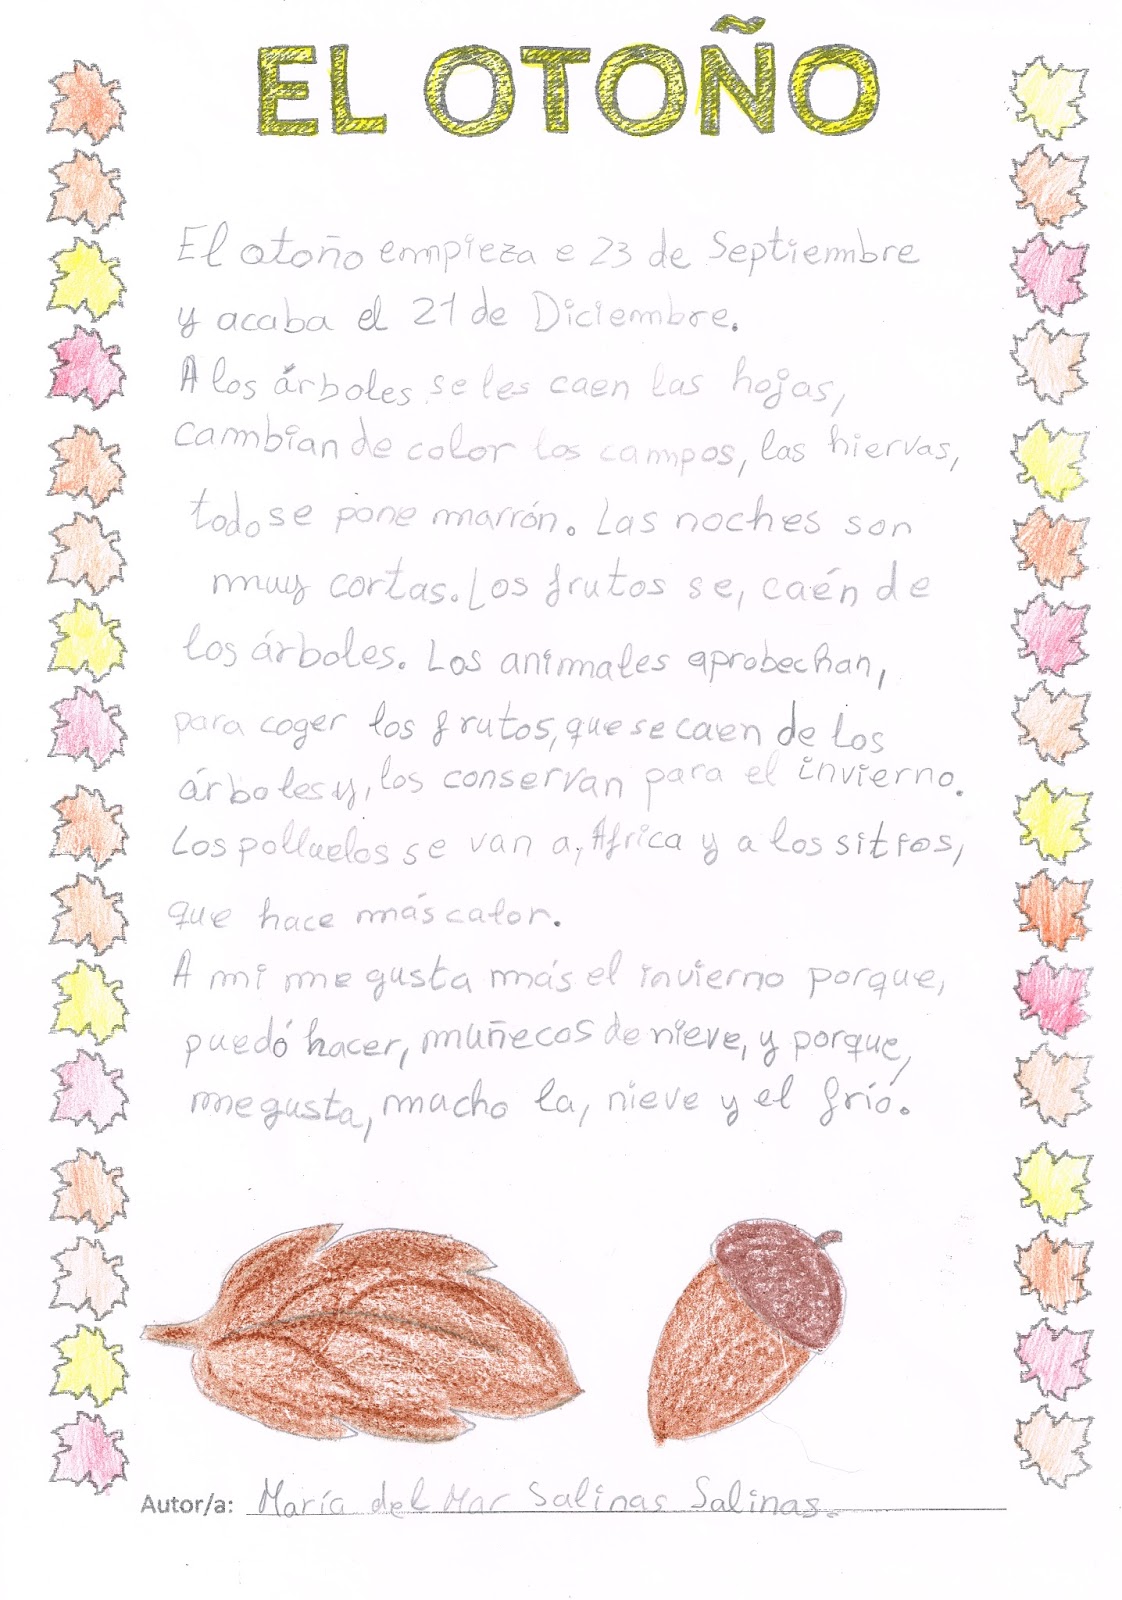 EL OTOÑO
El otoño empieza e 23 de Septiembre
y acaba el 21 de Diciembre.
A los árboles se les caen las hojas,
cambian de color los campos, las hiervas,
todo se pone marrón. Las noches son
muy cortas. Los frutos se, caén de
los árboles. Los animales aprobechan,
para coger los frutos, que se caen de los
árboles y, los conservan para el invierno.
Los polluelos se van a, África y a los sitios,
que hace más calor.
A mi me gusta más el invierno porque,
puedó hacer, muñecos de nieve, y porque,
me gusta, mucho la, nieve y el frío.
Autor/a: María del Mar Salinas Salinas.